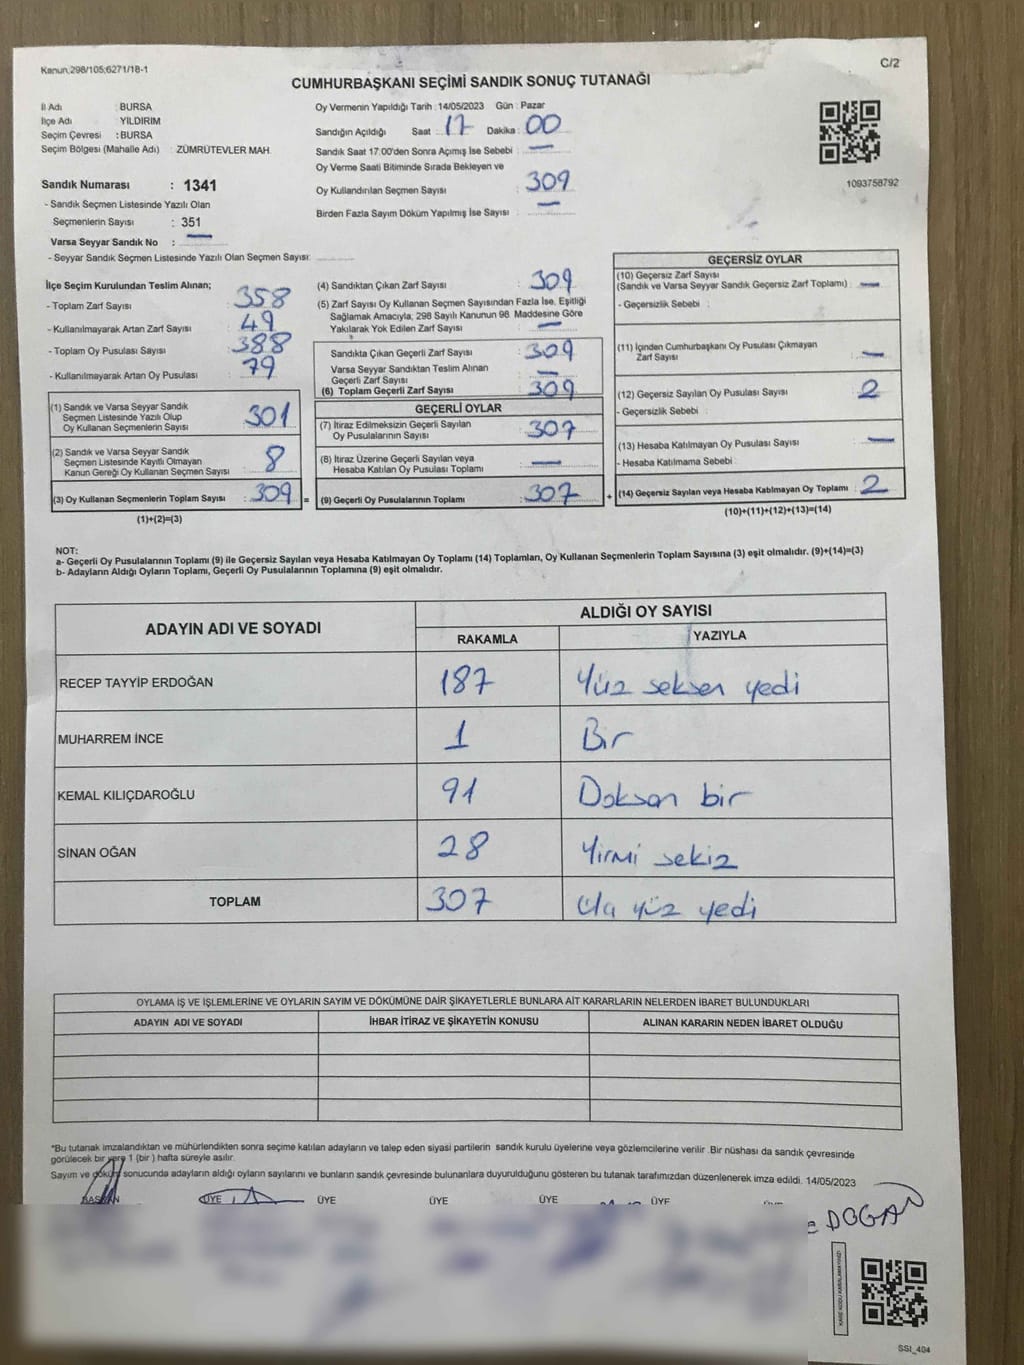 Kanun,298/105;6271/18-1
C/2
CUMHURBAŞKANI SEÇİMİ SANDIK SONUÇ TUTANAĞI
İl Adı : BURSA
İlçe Adı : YILDIRIM
Seçim Çevresi : BURSA
Seçim Bölgesi (Mahalle Adı) : ZÜMRÜTEVLER MAH.
Sandık Numarası : 1341
- Sandık Seçmen Listesinde Yazılı Olan
Seçmenlerin Sayısı : 351
Varsa Seyyar Sandık No : —
- Seyyar Sandık Seçmen Listesinde Yazılı Olan Seçmen Sayısı:
Oy Vermenin Yapıldığı Tarih : 14/05/2023 Gün : Pazar
Sandığın Açıldığı Saat : 17 Dakika : 00
Sandık Saat 17:00'den Sonra Açımış İse Sebebi : —
Oy Verme Saati Bitiminde Sırada Bekleyen ve
Oy Kullandırılan Seçmen Sayısı : 309
Birden Fazla Sayım Döküm Yapılmış İse Sayısı : —
1093758792
İlçe Seçim Kurulundan Teslim Alınan;
- Toplam Zarf Sayısı : 358
- Kullanılmayarak Artan Zarf Sayısı : 49
- Toplam Oy Pusulası Sayısı : 388
- Kullanılmayarak Artan Oy Pusulası : 79
(1) Sandık ve Varsa Seyyar Sandık
Seçmen Listesinde Yazılı Olup
Oy Kullanan Seçmenlerin Sayısı : 301
(2) Sandık ve Varsa Seyyar Sandık
Seçmen Listesinde Kayıtlı Olmayan
Kanun Gereği Oy Kullanan Seçmen Sayısı : 8
(3) Oy Kullanan Seçmenlerin Toplam Sayısı : 309 =
(1)+(2)=(3)
(4) Sandıktan Çıkan Zarf Sayısı : 309
(5) Zarf Sayısı Oy Kullanan Seçmen Sayısından Fazla İse, Eşitliği
Sağlamak Amacıyla, 298 Sayılı Kanunun 98. Maddesine Göre
Yakılarak Yok Edilen Zarf Sayısı : —
Sandıkta Çıkan Geçerli Zarf Sayısı : 309
Varsa Seyyar Sandıktan Teslim Alınan
Geçerli Zarf Sayısı : —
(6) Toplam Geçerli Zarf Sayısı : 309
GEÇERLİ OYLAR
(7) İtiraz Edilmeksizin Geçerli Sayılan
Oy Pusulalarının Sayısı : 307
(8) İtiraz Üzerine Geçerli Sayılan veya
Hesaba Katılan Oy Pusulası Toplamı : —
(9) Geçerli Oy Pusulalarının Toplamı : 307 +
GEÇERSİZ OYLAR
(10) Geçersiz Zarf Sayısı
(Sandık ve Varsa Seyyar Sandık Geçersiz Zarf Toplamı) : —
- Geçersizlik Sebebi :
(11) İçinden Cumhurbaşkanı Oy Pusulası Çıkmayan
Zarf Sayısı : —
(12) Geçersiz Sayılan Oy Pusulası Sayısı : 2
- Geçersizlik Sebebi :
(13) Hesaba Katılmayan Oy Pusulası Sayısı : —
- Hesaba Katılmama Sebebi :
(14) Geçersiz Sayılan veya Hesaba Katılmayan Oy Toplamı : 2
(10)+(11)+(12)+(13)=(14)
NOT:
a- Geçerli Oy Pusulalarının Toplamı (9) ile Geçersiz Sayılan veya Hesaba Katılmayan Oy Toplamı (14) Toplamları, Oy Kullanan Seçmenlerin Toplam Sayısına (3) eşit olmalıdır. (9)+(14)=(3)
b- Adayların Aldığı Oyların Toplamı, Geçerli Oy Pusulalarının Toplamına (9) eşit olmalıdır.
ADAYIN ADI VE SOYADI
ALDIĞI OY SAYISI
RAKAMLA YAZIYLA
RECEP TAYYİP ERDOĞAN 187 Yüz seksen yedi
MUHARREM İNCE 1 Bir
KEMAL KILIÇDAROĞLU 91 Doksan bir
SİNAN OĞAN 28 Yirmi sekiz
TOPLAM 307 yüz yedi
OYLAMA İŞ VE İŞLEMLERİNE VE OYLARIN SAYIM VE DÖKÜMÜNE DAİR ŞİKAYETLERLE BUNLARA AİT KARARLARIN NELERDEN İBARET BULUNDUKLARI
ADAYIN ADI VE SOYADI İHBAR İTİRAZ VE ŞİKAYETİN KONUSU ALINAN KARARIN NEDEN İBARET OLDUĞU
*Bu tutanak imzalandıktan ve mühürlendikten sonra seçime katılan adayların ve talep eden siyasi partilerin sandık kurulu üyelerine veya gözlemcilerine verilir .Bir nüshası da sandık çevresinde
görülecek bir yere 1 (bir ) hafta süreyle asılır.
Sayım ve döküm sonucunda adayların aldığı oyların sayılarını ve bunların sandık çevresinde bulunanlara duyurulduğunu gösteren bu tutanak tarafımızdan düzenlenerek imza edildi. 14/05/2023
BAŞKAN ÜYE ÜYE ÜYE ÜYE ÜYE
DOGAN
SSI_404